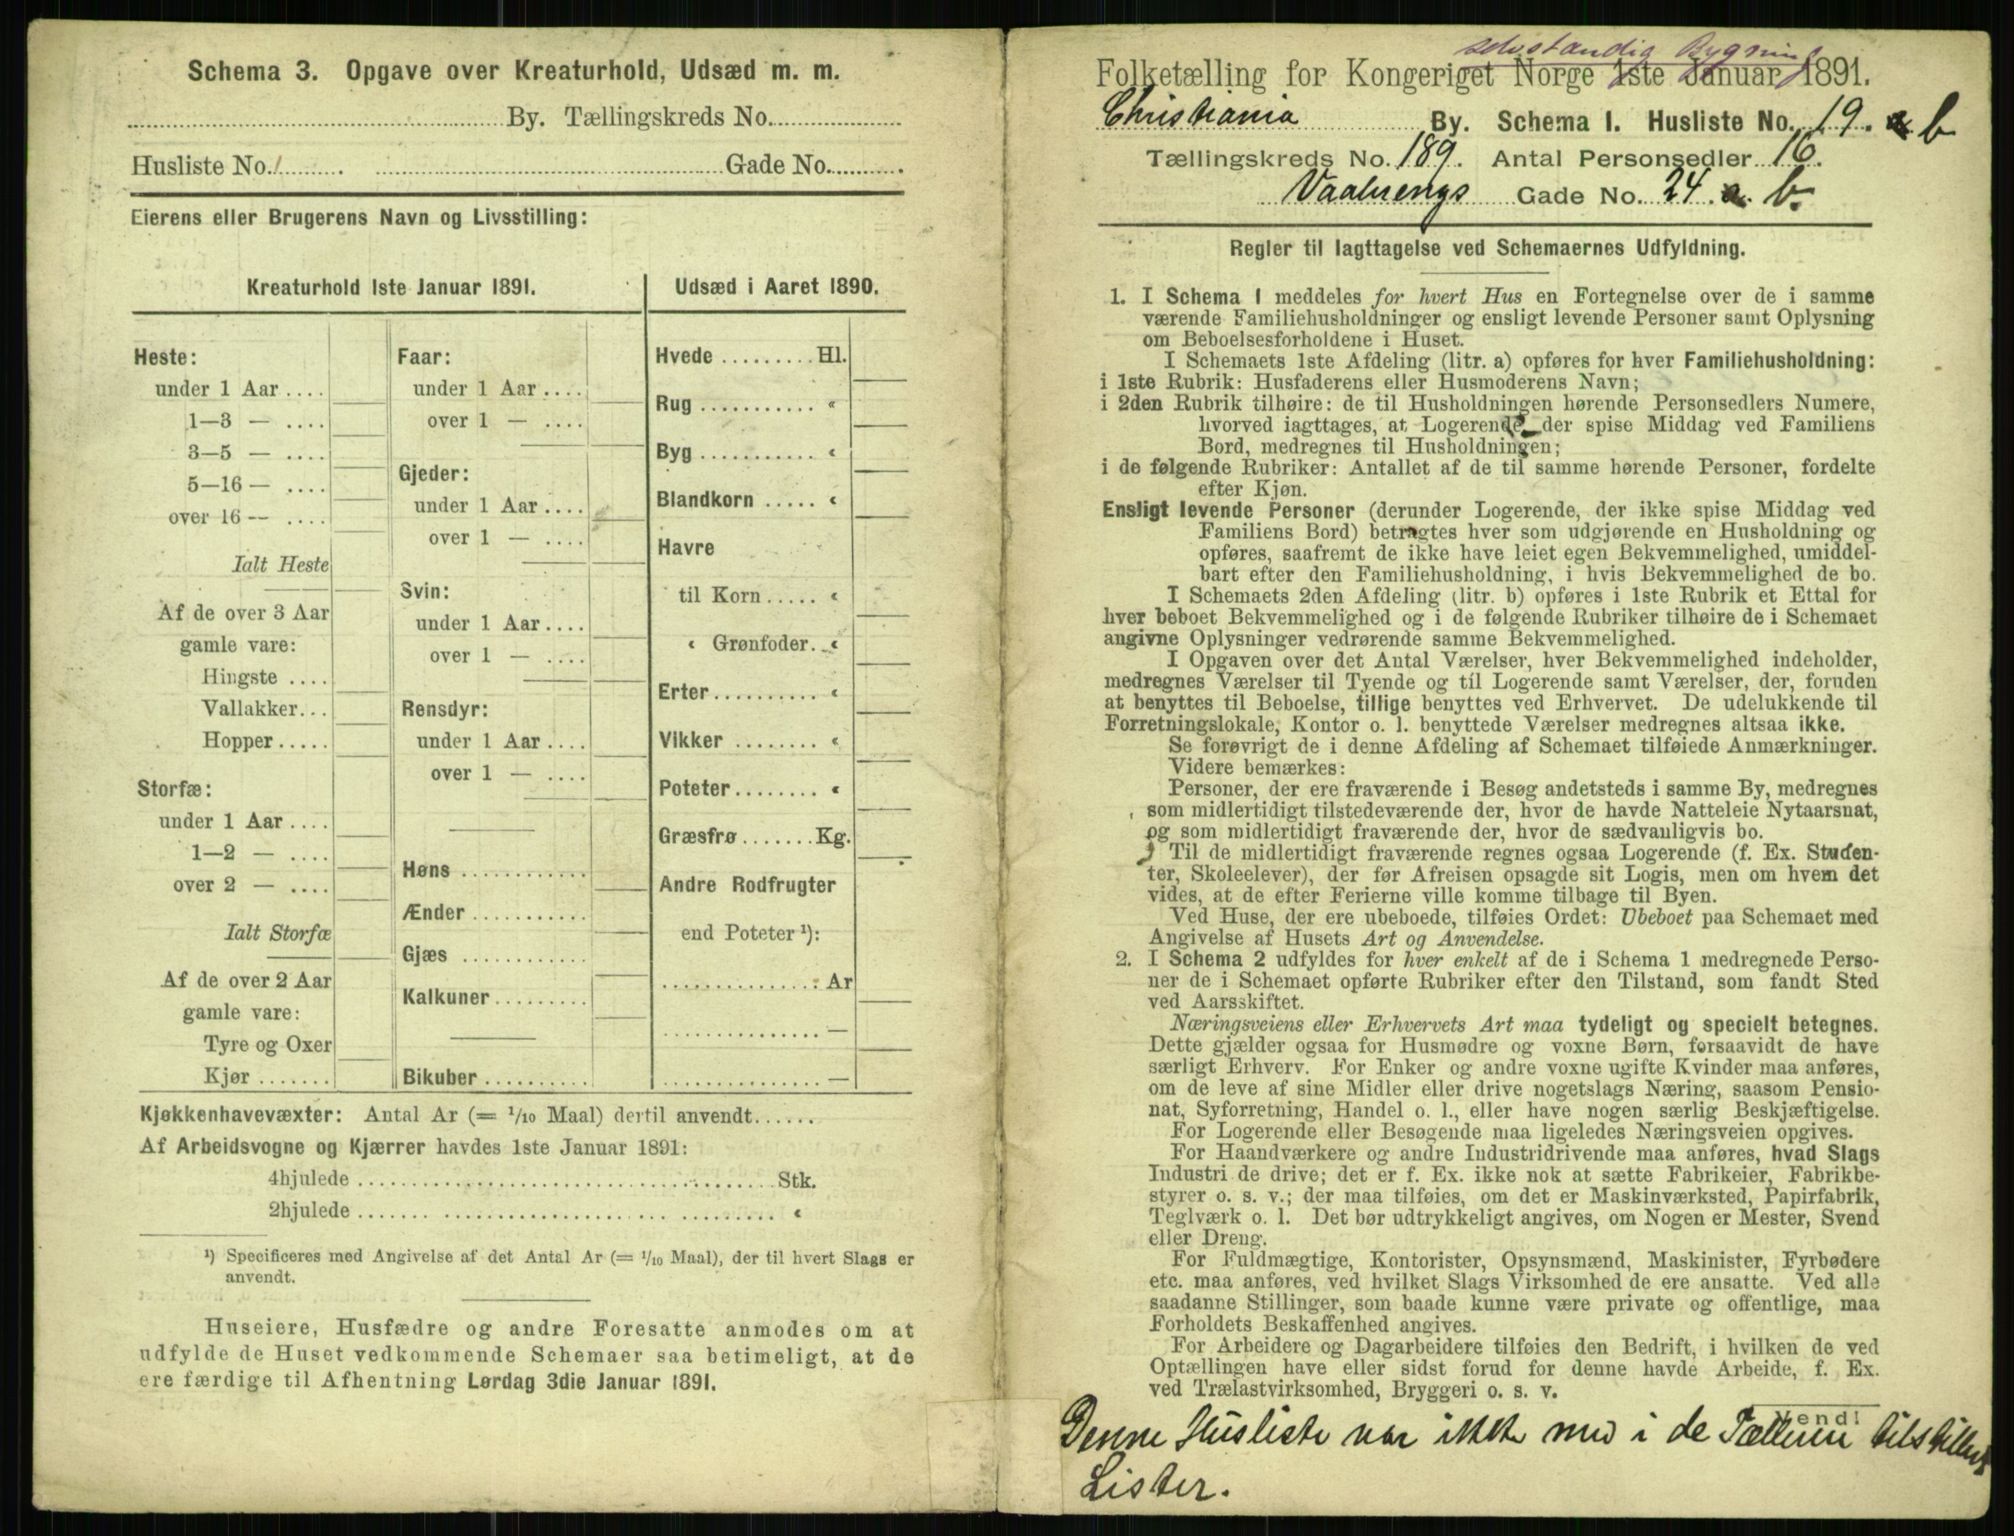 Schema 3. Opgave over Kreaturhold, Udsæd m. m.
By. Tællingskreds No.
Husliste No. Gade No.
Eierens eller Brugerens Navn og Livsstilling:
Kreaturhold 1ste Januar 1891.
Heste:
under 1 Aar ....
1—3 — ....
3—5 — ....
5—16 — ....
over 16 — ....
Ialt Heste
Af de over 3 Aar
gamle vare:
Hingste ....
Vallakker...
Hopper.....
Storfæ:
under 1 Aar ....
1—2 — ....
over 2 — ....
Ialt Storfæ
Af de over 2 Aar
gamle vare:
Tyre og Oxer
Kjør.......
Faar:
under 1 Aar ....
over 1 — ....
Gjeder:
under 1 Aar ....
over 1 — ....
Svin:
under 1 Aar ....
over 1 — ....
Rensdyr:
under 1 Aar ....
over 1 — ....
Høns ............
Ænder ...........
Gjæs ............
Kalkuner.........
Bikuber ..........
Udsæd i Aaret 1890.
Hvede ......... Hl.
Rug ........... «
Byg ........... «
Blandkorn ..... «
Havre
til Korn ..... «
« Grønfoder.. «
Erter.......... «
Vikker ........ «
Poteter........ «
Græsfrø ....... Kg.
Andre Rodfrugter
end Poteter ¹):
............... Ar
............... —
............... —
Kjøkkenhavevæxter: Antal Ar (= 1/10 Maal) dertil anvendt......
Af Arbeidsvogne og Kjærrer havdes 1ste Januar 1891:
4hjulede ........................................ Stk.
2hjulede ........................................ «
¹) Specificeres med Angivelse af det Antal Ar (= 1/10 Maal), der til hvert Slags er
anvendt.
Huseiere, Husfædre og andre Foresatte anmodes om at
udfylde de Huset vedkommende Schemaer saa betimeligt, at de
ere færdige til Afhentning Lørdag 3die Januar 1891.
selvstændig Bygning
Folketælling for Kongeriget Norge 1ste Januar 1891.
Christiania By. Schema 1. Husliste No. 19. b
Tællingskreds No. 189. Antal Personsedler 16.
Vaalerengs Gade No. 24 a. b.
Regler til Iagttagelse ved Schemaernes Udfyldning.
1. I Schema 1 meddeles for hvert Hus en Fortegnelse over de i samme
værende Familiehusholdninger og ensligt levende Personer samt Oplysning
om Beboelsesforholdene i Huset.
I Schemaets 1ste Afdeling (litr. a) opføres for hver Familiehusholdning:
i 1ste Rubrik: Husfaderens eller Husmoderens Navn;
i 2den Rubrik tilhøire: de til Husholdningen hørende Personsedlers Numere,
hvorved iagttages, at Logerende, der spise Middag ved Familiens
Bord, medregnes til Husholdningen;
i de følgende Rubriker: Antallet af de til samme hørende Personer, fordelte
efter Kjøn.
Ensligt levende Personer (derunder Logerende, der ikke spise Middag ved
Familiens Bord) betragtes hver som udgjørende en Husholdning og
opføres, saafremt de ikke have leiet egen Bekvemmelighed, umiddel-
bart efter den Familiehusholdning, i hvis Bekvemmelighed de bo.
I Schemaets 2den Afdeling (litr. b) opføres i 1ste Rubrik et Ettal for
hver beboet Bekvemmelighed og i de følgende Rubriker tilhøire de i Schemaet
angivne Oplysninger vedrørende samme Bekvemmelighed.
I Opgaven over det Antal Værelser, hver Bekvemmelighed indeholder,
medregnes Værelser til Tyende og til Logerende samt Værelser, der, foruden
at benyttes til Beboelse, tillige benyttes ved Erhvervet. De udelukkende til
Forretningslokale, Kontor o. l. benyttede Værelser medregnes altsaa ikke.
Se forøvrigt de i denne Afdeling af Schemaet tilføiede Anmærkninger.
Videre bemærkes:
Personer, der ere fraværende i Besøg andetsteds i samme By, medregnes
som midlertidigt tilstedeværende der, hvor de havde Natteleie Nytaarsnat,
og som midlertidigt fraværende der, hvor de sædvanligvis bo.
Til de midlertidigt fraværende regnes ogsaa Logerende (f. Ex. Studen-
ter, Skoleelever), der før Afreisen opsagde sit Logis, men om hvem det
vides, at de efter Ferierne ville komme tilbage til Byen.
Ved Huse, der ere ubeboede, tilføies Ordet: Ubeboet paa Schemaet med
Angivelse af Husets Art og Anvendelse.
2. I Schema 2 udfyldes for hver enkelt af de i Schema 1 medregnede Perso-
ner de i Schemaet opførte Rubriker efter den Tilstand, som fandt Sted
ved Aarsskiftet.
Næringsveiens eller Erhvervets Art maa tydeligt og specielt betegnes.
Dette gjælder ogsaa for Husmødre og voxne Børn, forsaavidt de have
særligt Erhverv. For Enker og andre voxne ugifte Kvinder maa anføres,
om de leve af sine Midler eller drive nogetslags Næring, saasom Pensio-
nat, Syforretning, Handel o. l., eller have nogen særlig Beskjæftigelse.
For Logerende eller Besøgende maa ligeledes Næringsveien opgives.
For Haandværkere og andre Industridrivende maa anføres, hvad Slags
Industri de drive; det er f. Ex. ikke nok at sætte Fabrikeier, Fabrikbe-
styrer o. s. v.; der maa tilføies, om det er Maskinværksted, Papirfabrik,
Teglværk o. l. Det bør udtrykkeligt angives, om Nogen er Mester, Svend
eller Dreng.
For Fuldmægtige, Kontorister, Opsynsmænd, Maskinister, Fyrbødere
etc. maa anføres, ved hvilket Slags Virksomhed de ere ansatte. Ved alle
saadanne Stillinger, som baade kunne være private og offentlige, maa
Forholdets Beskaffenhed angives.
For Arbeidere og Dagarbeidere tilføies den Bedrift, i hvilken de ved
Optællingen have eller sidst forud for denne havde Arbeide, f. Ex.
ved Trælastvirksomhed, Bryggeri o. s. v.
Vend!
Denne Husliste var ikke med i de Tælleren tilstillede
Lister.